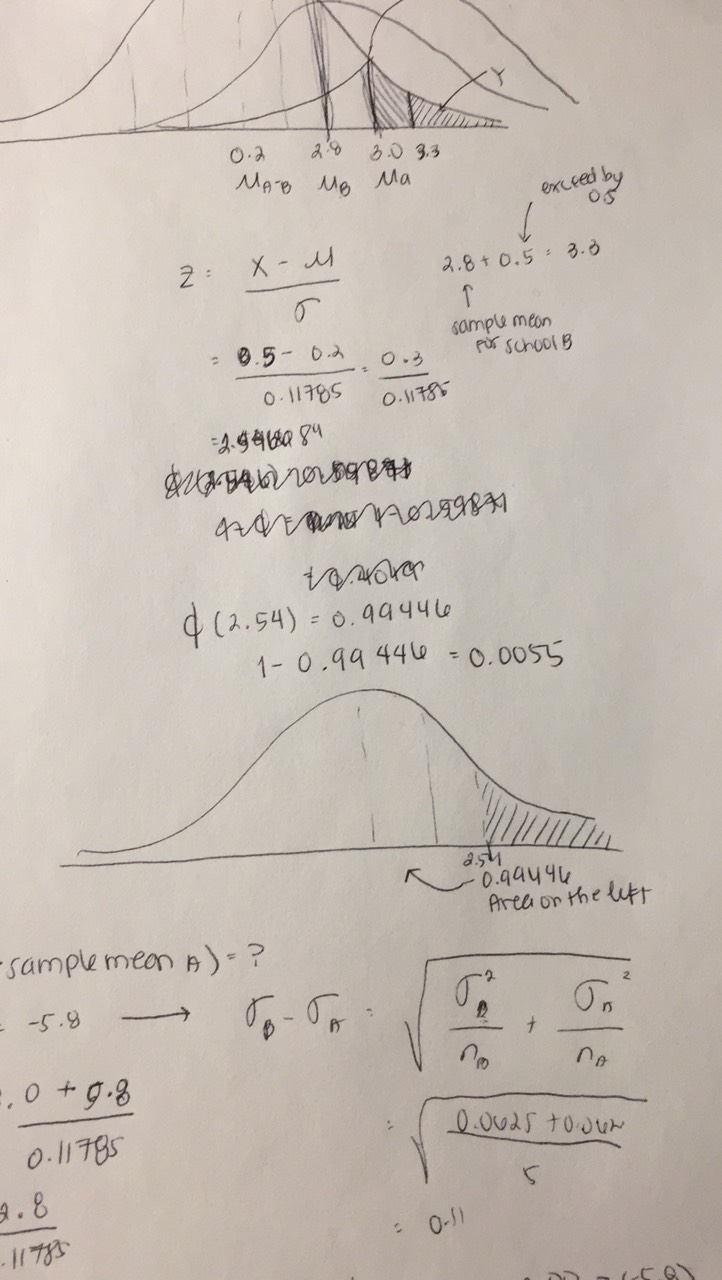 Y
0.2 2.8 3.0 3.3
μA-B μB μa
exceed by
0.5
2.8 + 0.5 = 3.3
sample mean
for school B
z = x - μ
σ
= 0.5 - 0.2 = 0.3
0.11785 0.11785
φ(2.54) = 0.99446
1 - 0.99446 = 0.0055
2.54
0.99446
Area on the left
sample mean A) = ?
= -5.8 → σB - σA = √ σB² + σA²
nB nA
.0 + 5.8
0.11785
= √ 0.0625 + 0.062
5
2.8
.11785
= 0.11
(-5.8)